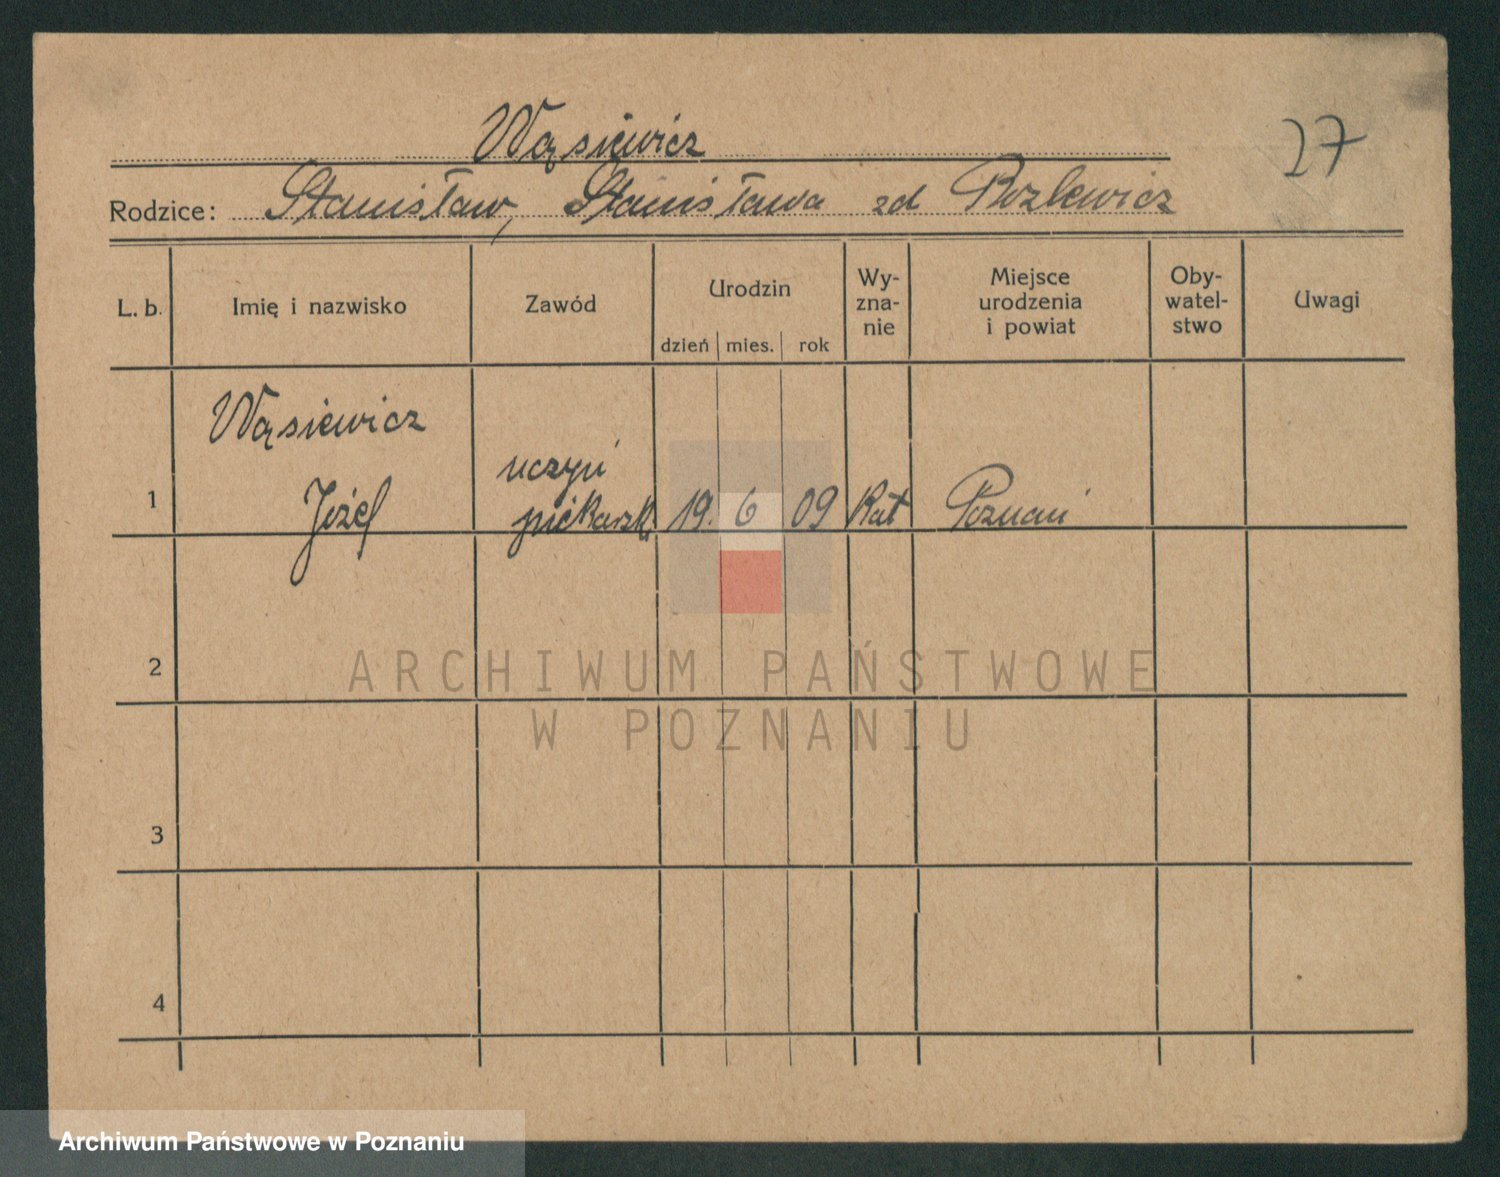 Wąsiewicz
27
Rodzice: Stanisław, Stanisława zd Rozlewicz
L. b. Imię i nazwisko Zawód Urodzin dzień mies. rok Wy-zna-nie Miejsce urodzenia i powiat Oby-watel-stwo Uwagi
Wąsiewicz
uczyń
1 Józef piekarsk. 19. 6 09 Kat Poznań
2
ARCHIWUM PAŃSTWOWE
W POZNANIU
3
4
Archiwum Państwowe w Poznaniu